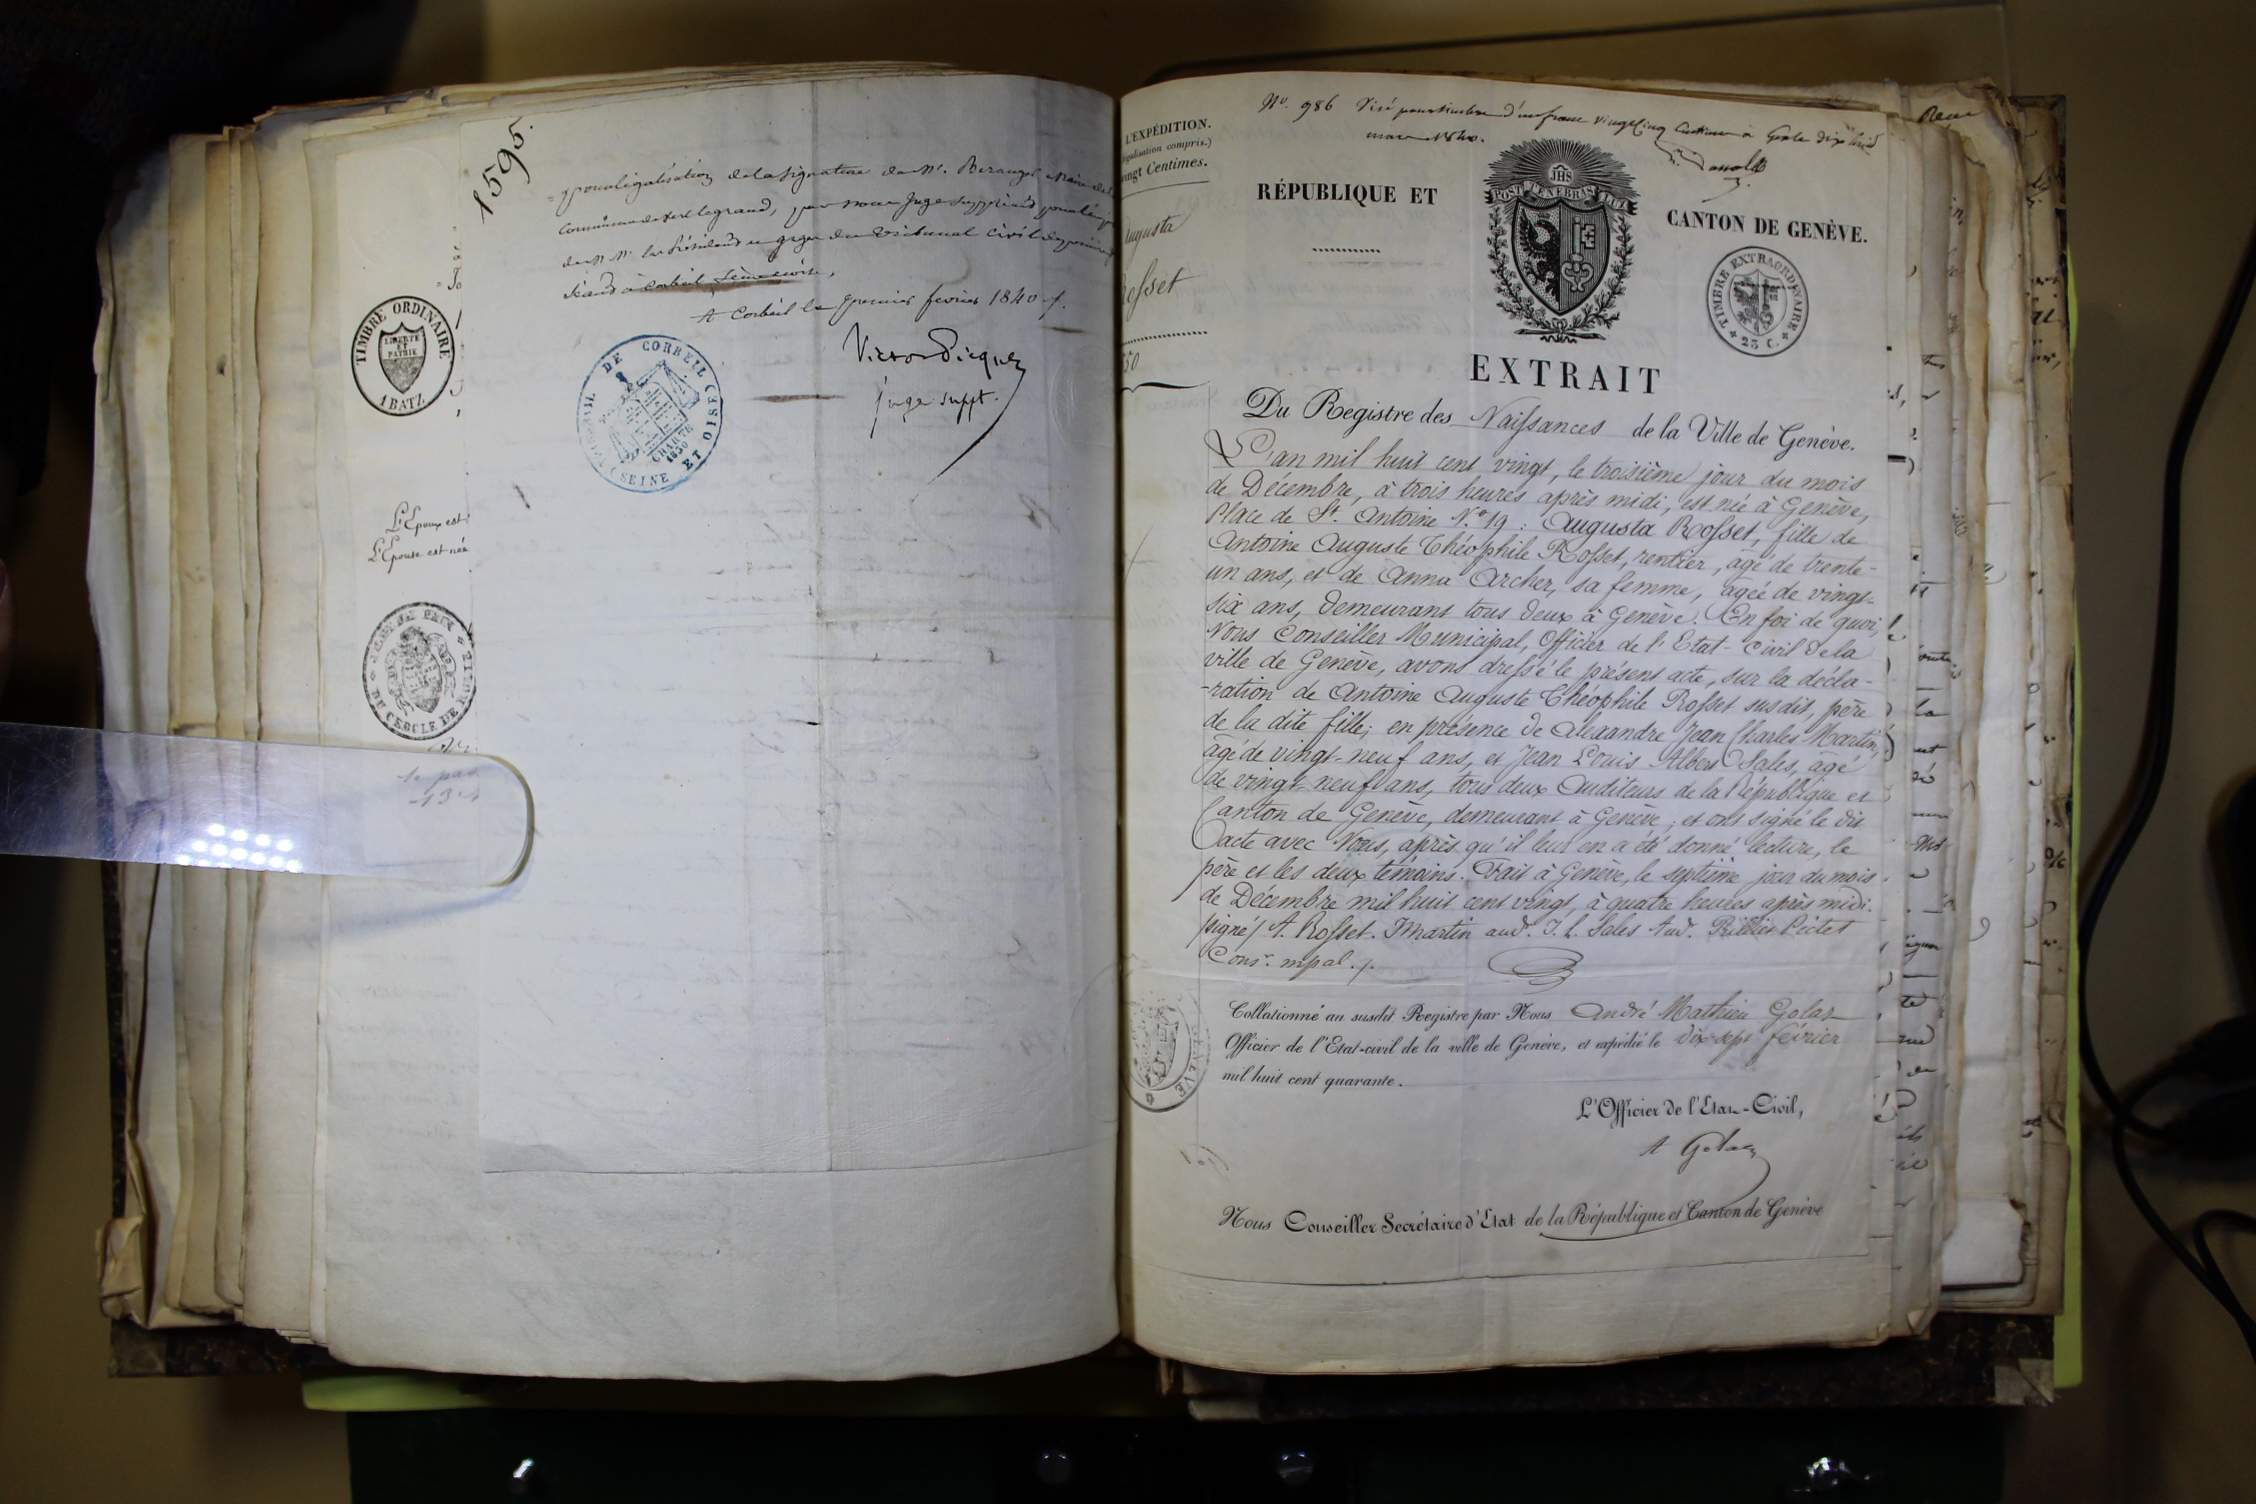 1595.
pour légalisation de la signature de Mr. Beranger Maire de la
commune de Vert le grand, par nous Juge suppléant pour l'emp
de M. M. les Présidens et Juges du tribunal civil de première
séant à Corbeil Seine et oise,
A Corbeil le premier fevrier 1840 /.
Victor Picquet
juge suppt.
TRIBUNAL DE CORBEIL (SEINE ET OISE)
CHARTE
1830
TIMBRE ORDINAIRE
LIBERTÉ
ET
PATRIE
1 BATZ
L'Epoux est
L'Epouse est née
DU CERCLE DE
No. 986 Visé pour timbre d'un franc vingt cinq Centimes à Gex le dix huit
mars 1840.
L'EXPÉDITION.
(légalisation compris.)
vingt Centimes.
Augusta
Rosset
50
RÉPUBLIQUE ET
CANTON DE GENÈVE.
JHS
POST TENEBRAS LUX
TIMBRE EXTRAORDINAIRE
25 C.
EXTRAIT
Du Registre des Naissances de la Ville de Genève.
L'an mil huit cent vingt, le troisième jour du mois
de Décembre, à trois heures après midi, est née à Genève,
Place de St. Antoine N.o 19 : Augusta Rosset, fille de
Antoine Auguste Théophile Rosset, rentier, agé de trente-
un ans, et de Anna Archer, sa femme, agée de vingt-
six ans, demeurant tous deux à Genève. En foi de quoi,
Nous Conseiller Municipal, Officier de l'Etat-Civil de la
ville de Genève, avons dressé le présent acte, sur la décla-
-ration de Antoine Auguste Théophile Rosset susdit, père
de la dite fille; en présence de Alexandre Jean Charles Martin,
agé de vingt-neuf ans, et Jean Louis Albert Sales, agé
de vingt-neuf ans, tous deux Auditeurs de la République et
Canton de Genève, demeurant à Genève; et ont signé le dit
acte avec Nous, après qu'il leur en a été donné lecture, le
père et les deux témoins. Fait à Genève, le septième jour du mois
de Décembre mil huit cent vingt, à quatre heures après midi.
/signé/ A. Rosset. J Martin aud. J. L. Sales Aud. Rilliet Pictet
Consr. mpal./.
Collationné au susdit Registre par Nous André Mathieu Golay
Officier de l'Etat-civil de la ville de Genève, et expédié le dix-sept février
mil huit cent quarante.
L'Officier de l'Etat-Civil,
A Golay
Nous Conseiller Secrétaire d'Etat de la République et Canton de Genève